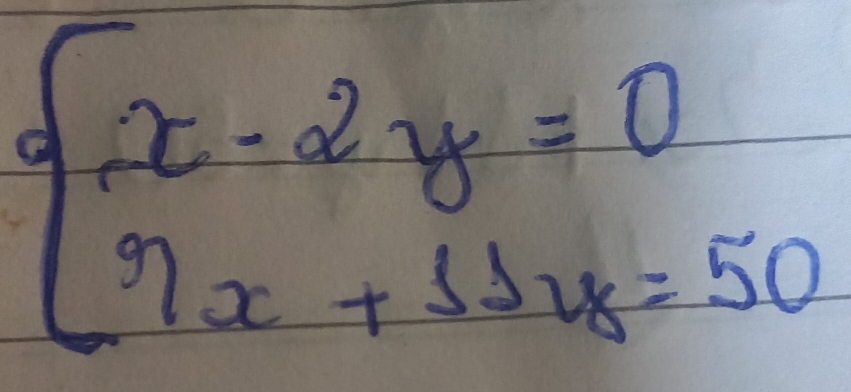 x - 2y = 0
7x + 11y = 50